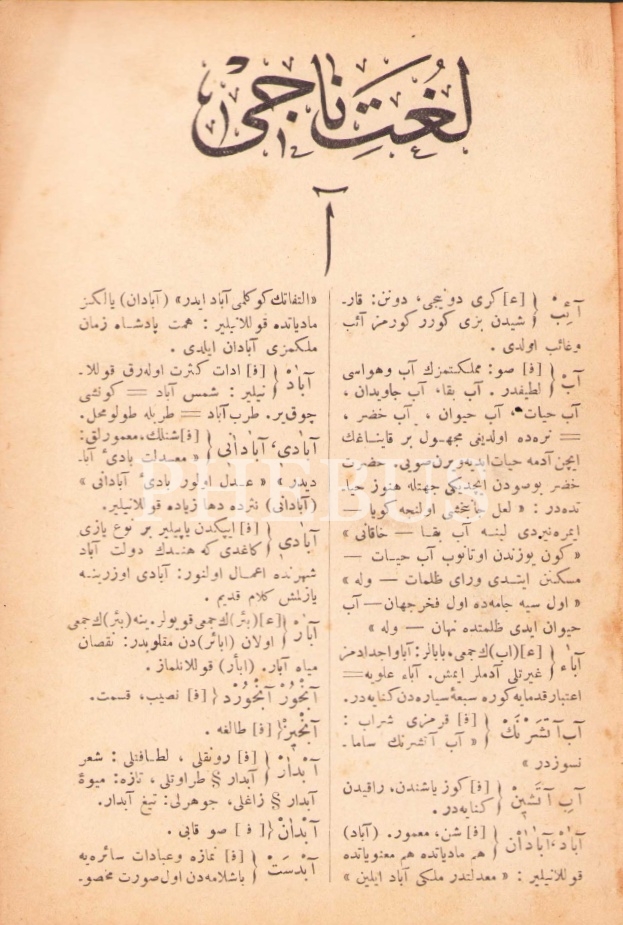 لغت ناجی
آ
آئب } [ع] كری دونیجی، دونن: قار۔
شیدن بزی كورر كورمز آئب
وغائب اولدی .
آب } [ف] صو: مملكتمزك آب وهواسی
لطیفدر . آب بقا، آب جاویدان ،
آب حیات، آب حیوان ، آب خضر ،
= نره‌ده اولدیغی مجهـول بر قایناغك
ایچن آدمه حیات ابدیه ویرن صویی. حضرت
خضر بوصودن ایچدیكی جهتله هنوز حیا۔
تده‌در : « لعل جانبخشی اولنجه كویا —
ایمره‌نیردی لبنـه آب بقـا — خاقانی »
« كون یوزندن اوتانوب آب حیـات —
مسكـنن ایتـدی ورای ظلمات — وله »
« اول سیه جامه‌ده اول فخر جهان — آب
حیوان ایدی ظلمتده نهان — وله »
آباء } [ع] (اب) ك جمعی، بابالر: آبا واجدادمز
غیرتلی آدملر ایمش. آباء علویه =
اعتبار قدمایه كوره سبعۀ سیاره‌دن كنایه‌در.
آب آتشرنك } [ف] قرمزی شراب :
« آب آتشرنك ساما۔
نسوزدر »
آب آتشین } [ف] كوز یاشندن، راقیدن
كنایه‌در .
آباد، آبادان } [ف] شن، معمور. (آباد)
هم مادیاتده هم معنویاتده
قوللانیلیر : « معدلتدر ملكی آباد ایلین »
«التفاتك كوكلمی آباد ایدر» (آبادان) یالكز
مادیاتده قوللانیلیر : همت پادشـاه زمان
ملكمزی آبادان ایلدی .
آباد } [ف] ادات كثرت اوله‌رق قوللا۔
نیلیر : شمس آباد = كونشی
چوق یر. طرب آباد = طربله طولو محل.
آبادی، آبادانی } [ف] شنلك، معمورلق:
« معـدلت بادیٔ آبا۔
دیدر » « عـدل اولور بادیٔ آبادانی »
(آبادانی) نثرده دها زیاده قوللانیلیر.
آبادی } [ف] ایپكدن یاپیلیر بر نوع یازی
كاغدی كه هنـدك دولت آباد
شهرنده اعمـال اولنور: آبادی اوزرینـه
یازلمش كلام قدیم .
آبار } [ع] (بئر) ك جمعی قویولر. ینه (بئر) ك جمعی
اولان (ابائر) دن مقلوبدر: نقصان
میاه آبار. (ابأر) قوللانلماز .
آبخور آبخورد } [ف] نصیب، قسمت.
آبخیز } [ف] طالغه .
آبدار } [ف] رونقلی ، لطـافتلی : شعر
آبدار § طراوتلی، تازه: میوۀ
آبدار § زاغلی، جوهرلی: تیغ آبدار.
آبدان } [ف] صو قابی .
آبدست } [ف] نمازه وعبادات سائره‌یه
باشلامه‌دن اول صورت مخصو۔
PHEBUS